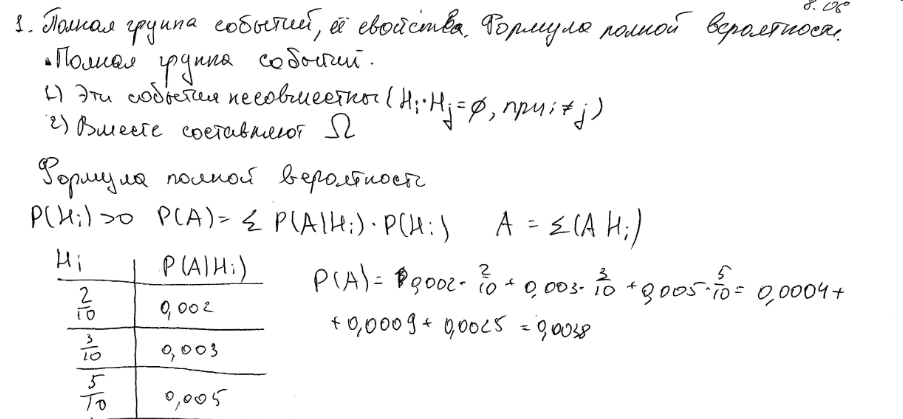 8.06
1. Полная группа событий, её свойства. Формула полной вероятности.
• Полная группа событий.
1) Эти события несовместны (Hi·Hj=∅, при i≠j)
2) Вместе составляют Ω
Формула полной вероятности
P(Hi)>0 P(A)= Σ P(A|Hi)·P(Hi) A = Σ(A Hi)
Hi P(A|Hi)
2/10 0,002
3/10 0,003
5/10 0,005
P(A)= 0,002·2/10 + 0,003·3/10 + 0,005·5/10 = 0,0004+
+0,0009+0,0025 = 0,0038